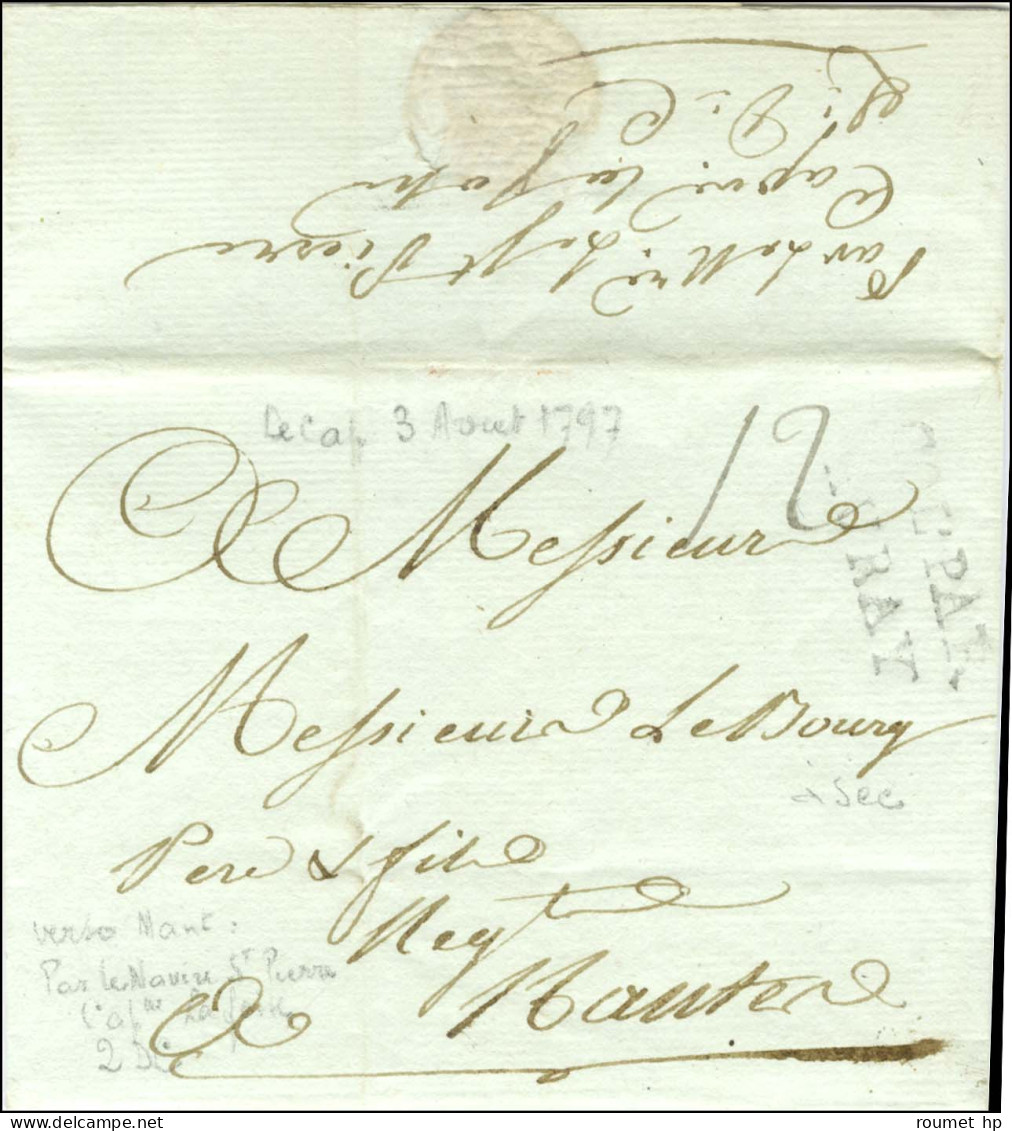 Par Le N.re Le St Pierre
Cap.ne La
2.i D.i C
Le Cap 3 Aout 1797
12
COL PAR
RAY
A Messieurs
Messieurs Le Bourg
Pere & fils
Neg.t
A Nantes
Sec
verso Mant :
Par le Navire St Pierre
Cap.ne
roumet hp